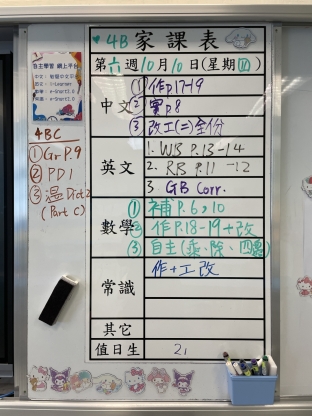 4B 家課表
第六週10月10日(星期四)
自主學習 網上平台
4BC
① Gr P.9
② PD1
③ 溫 Dict 2
(Part C)
中文
① 作p17-19
② 實p8
③ 改工(二)全份
英文
1. WB P.13-14
2. RB P.11-12
3 GB Corr.
數學
① 補 P.6,10
② 作P.18-19+改
③ 自主(乘、除、四
常識
作+工改
其它
值日生
21